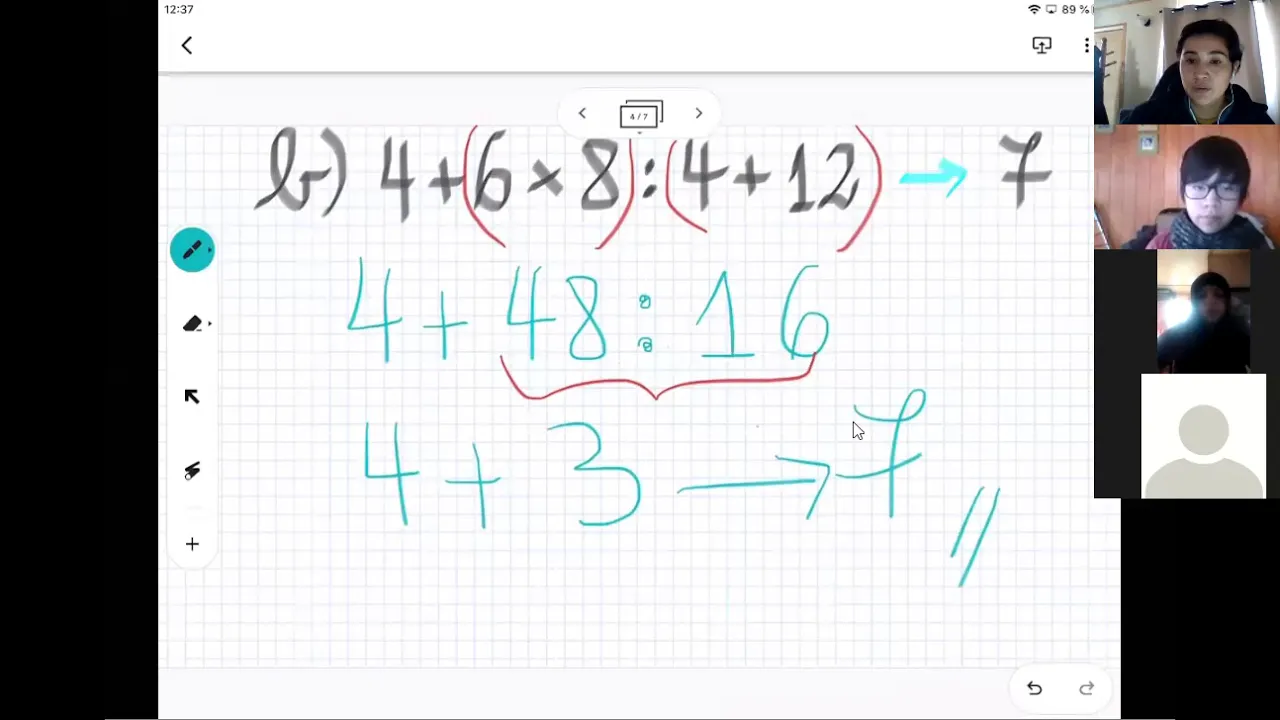 12:37
89 %
4/7
b) 4+(6×8):(4+12) → 7
4+48:16
4+3 → 7 //